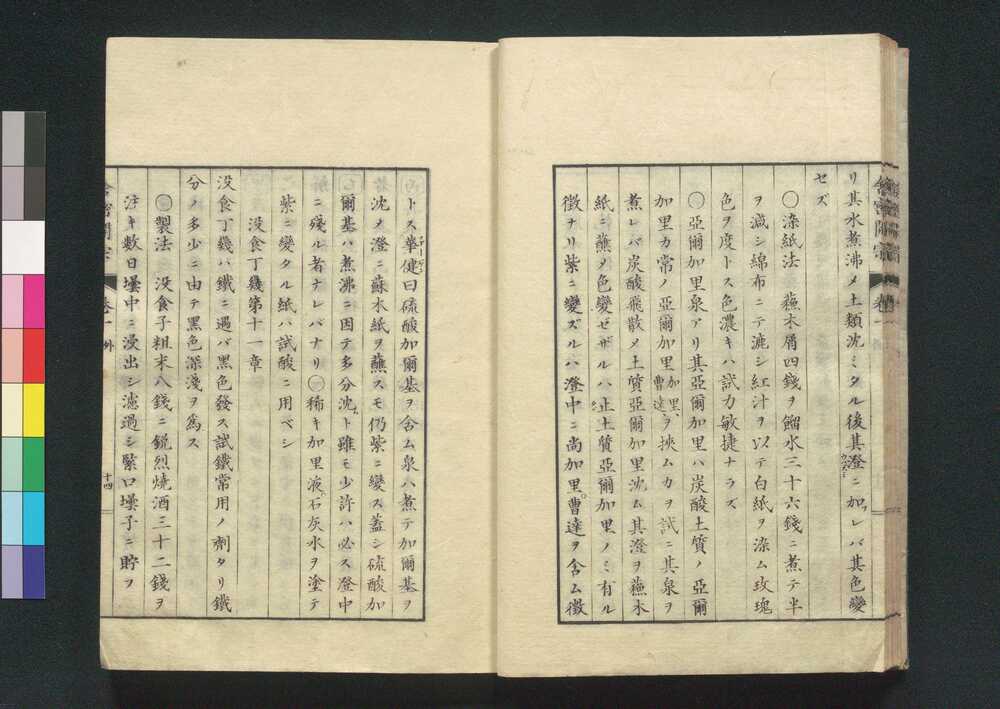 リ其水煮沸メ土類沈ミタル後其澄ニ加レバ其色變
セズ
〇染紙法 蘓木屑四錢ヲ餾水三十六錢ニ煮テ半
ヲ減シ綿布ニテ漉シ紅汁ヲ以テ白紙ヲ染ム玫瑰
色ヲ度トス色濃キハ試力敏捷ナラズ
〇亞爾加里泉アリ其亞爾加里ハ炭酸土質ノ亞爾
加里カ常ノ亞爾加里加里、曹達、ヲ挾ムカヲ試ニ其泉ヲ
煮レバ炭酸飛散メ土質亞爾加里沈ム其澄ヲ蘓木
紙ニ蘸メ色變ゼザルハ止土質亞爾加里ノミ有ル
徴ナリ紫ニ變ズルハ澄中ニ尚加里。曹達ヲ含ム徴
舎密開宗 巻一
トス華健曰硫酸加爾基ヲ含ム泉ハ煮テ加爾基ヲ
沈メ澄ニ蘇木紙ヲ蘸スモ仍紫ニ變ス蓋シ硫酸加
爾基ハ煮沸ニ因テ多分沈ト雖モ少許ハ必ス澄中
ニ殘ル者ナレバナリ〇稀キ加里液。石灰水ヲ塗テ
紫ニ變タル紙ハ試酸ニ用ベシ
没食丁幾第十一章
没食丁幾ハ鐵ニ遇バ黑色發ス試鐵常用ノ劑タリ鐵
分ノ多少ニ由テ黑色深淺ヲ爲ス
〇製法 没食子粗末八錢ニ鋭烈燒酒三十二錢ヲ
注キ數日壜中ニ浸出シ濾過シ緊口壜子ニ貯フ
巻一 外
十四